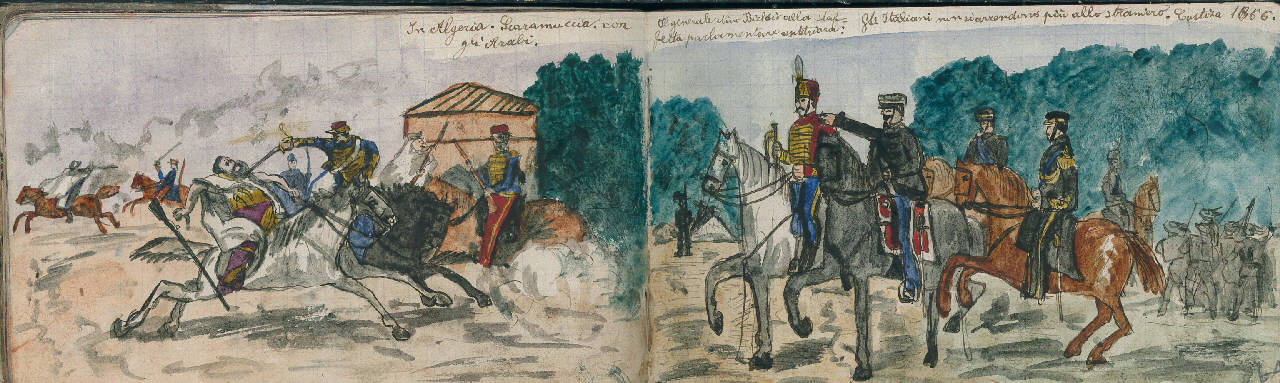 In Algeria. Scaramuccia. con
gli Arabi.
Il generale Nino Bixio alla staf-
fetta parlamentare austriaca:
Gli Italiani non si arrendono più allo straniero. Custoza 1866.